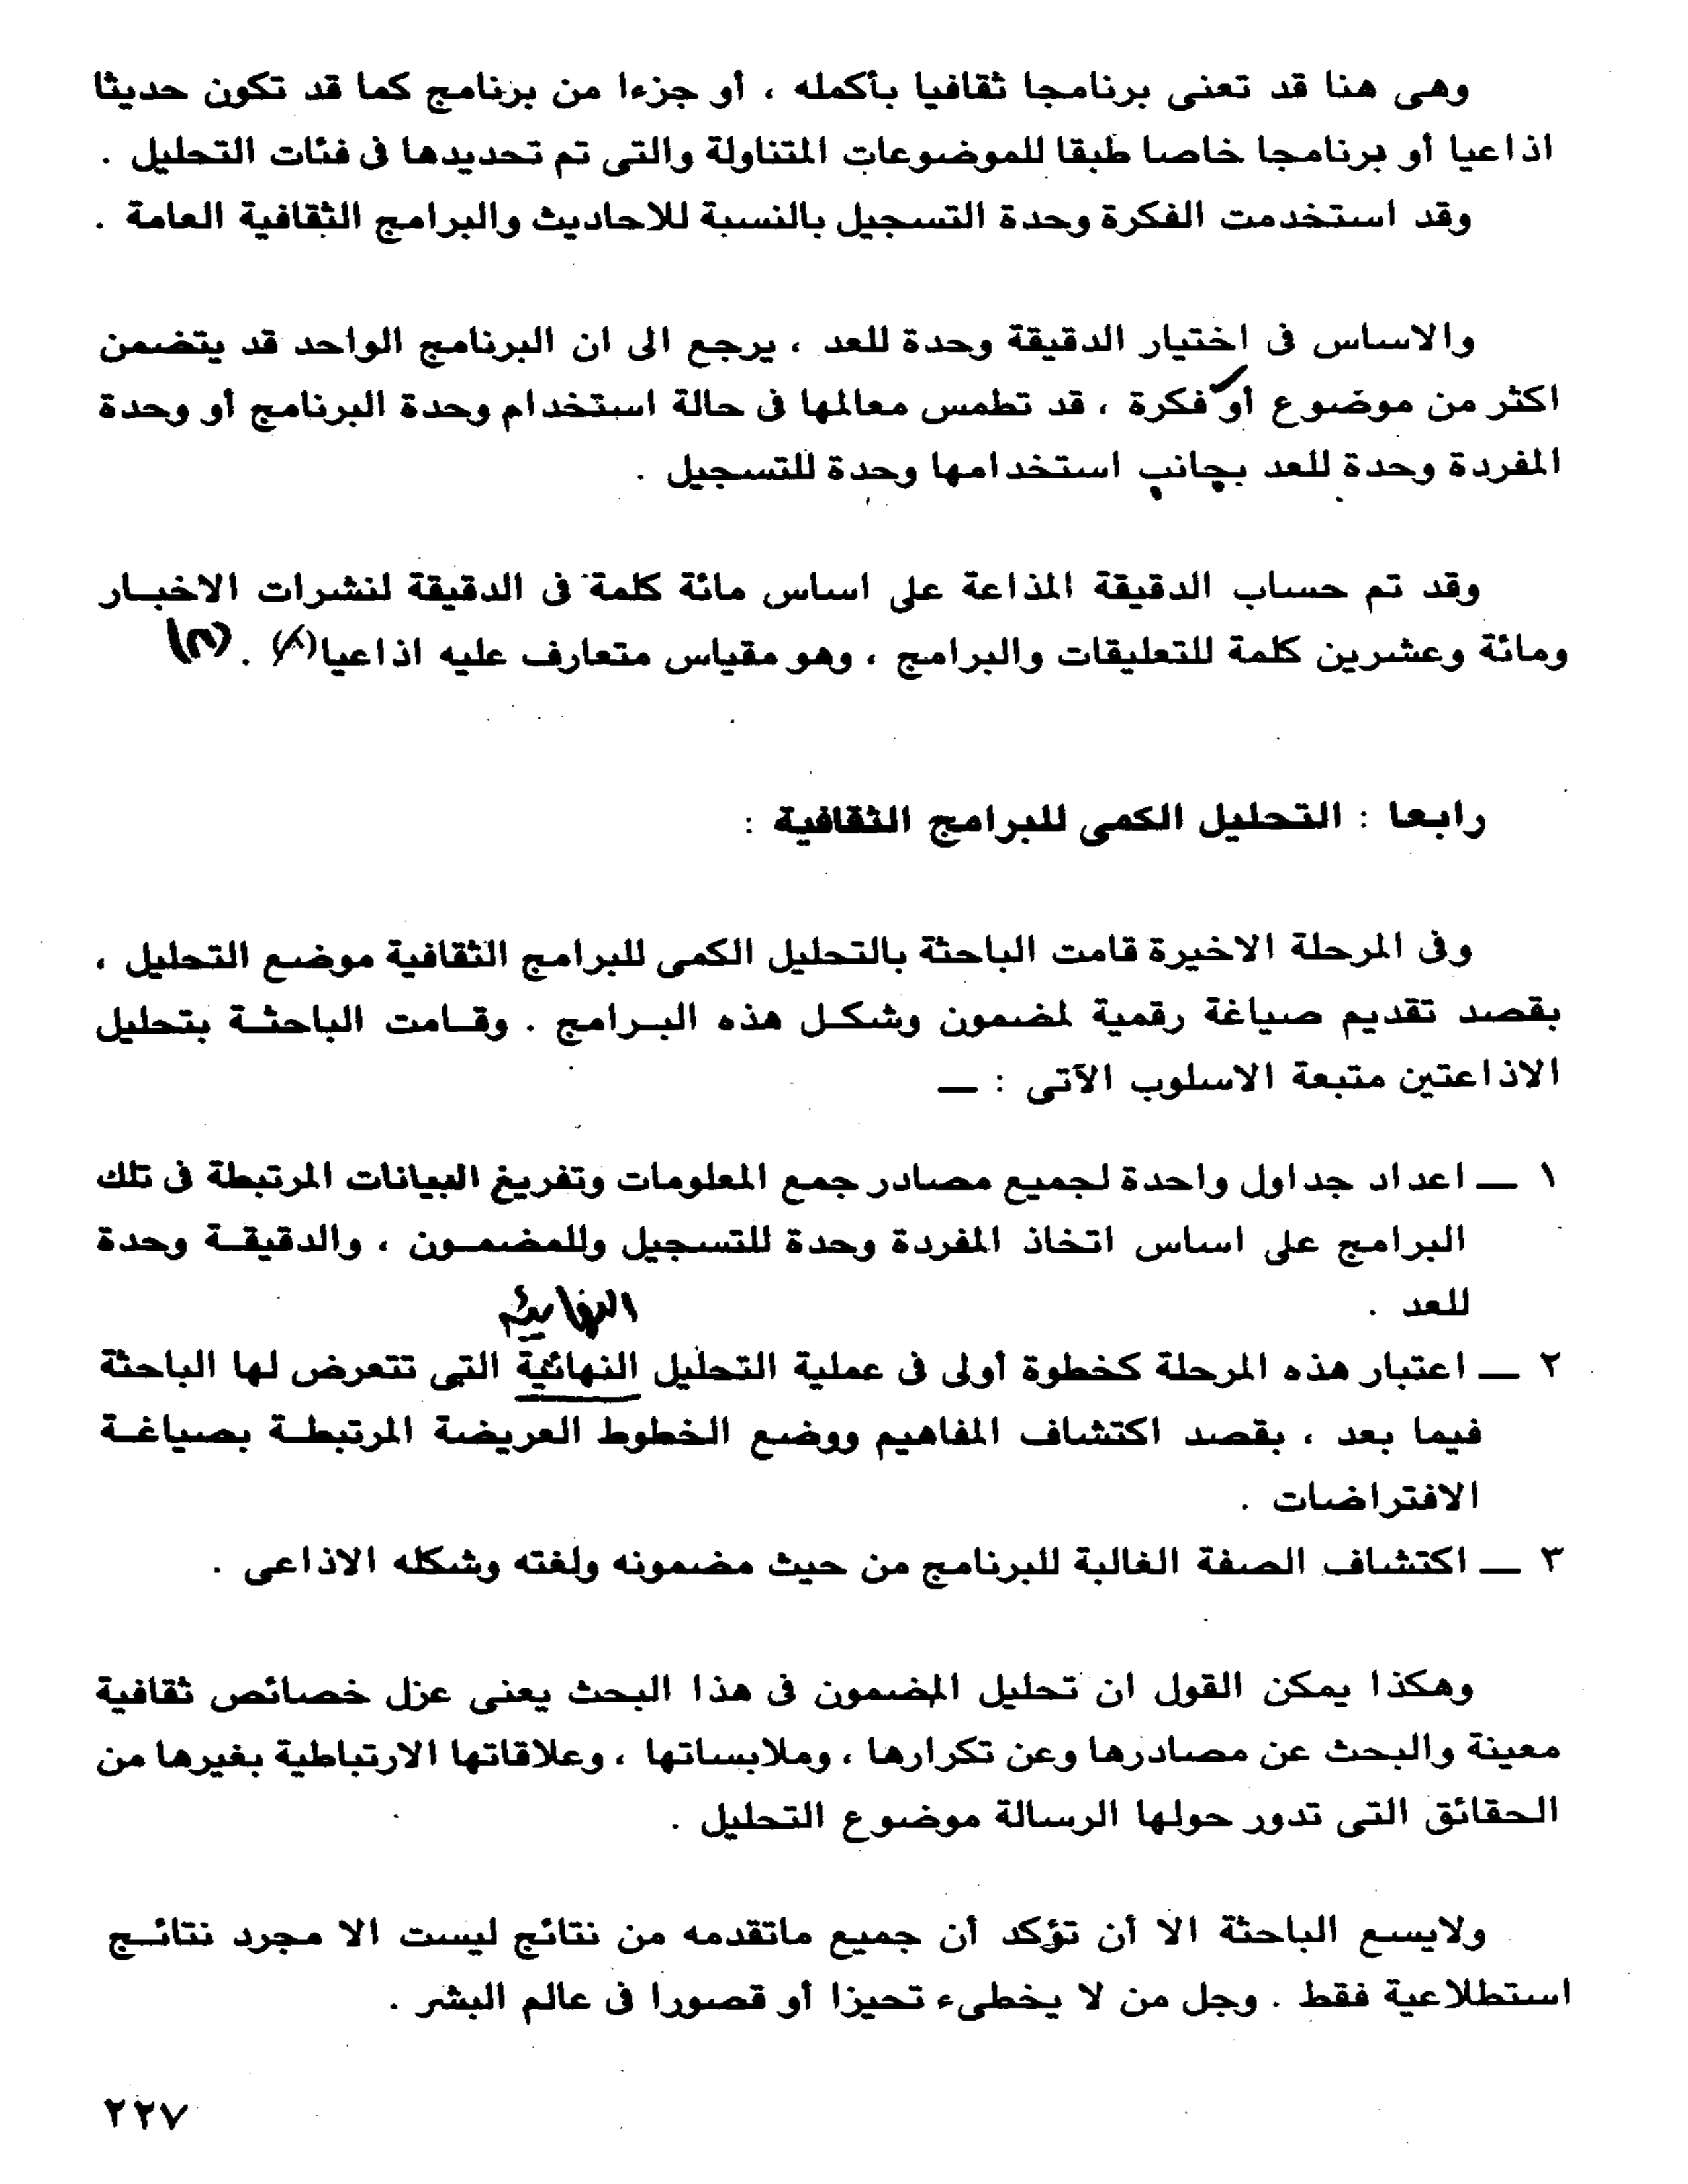 وهى هنا قد تعنى برنامجا ثقافيا بأكمله ، أو جزءا من برنامج كما قد تكون حديثا
اذاعيا أو برنامجا خاصا طبقا للموضوعات المتناولة والتى تم تحديدها فى فئات التحليل .
وقد استخدمت الفكرة وحدة التسجيل بالنسبة للاحاديث والبرامج الثقافية العامة .
والاساس فى اختيار الدقيقة وحدة للعد ، يرجع الى ان البرنامج الواحد قد يتضمن
اكثر من موضوع أو فكرة ، قد تطمس معالمها فى حالة استخدام وحدة البرنامج أو وحدة
المفردة وحدة للعد بجانب استخدامها وحدة للتسجيل .
وقد تم حساب الدقيقة المذاعة على اساس مائة كلمة فى الدقيقة لنشرات الاخبـار
ومائة وعشرين كلمة للتعليقات والبرامج ، وهو مقياس متعارف عليه اذاعيا .
رابعا : التحليل الكمى للبرامج الثقافية :
وفى المرحلة الاخيرة قامت الباحثة بالتحليل الكمى للبرامج الثقافية موضع التحليل ،
بقصد تقديم صياغة رقمية لمضمون وشكـل هذه البـرامج . وقـامت الباحثـة بتحليل
الاذاعتين متبعة الاسلوب الآتى : —
١ — اعداد جداول واحدة لجميع مصادر جمع المعلومات وتفريغ البيانات المرتبطة فى تلك
البرامج على اساس اتخاذ المفردة وحدة للتسجيل وللمضمـون ، والدقيقـة وحدة
للعد .
النهائية
٢ — اعتبار هذه المرحلة كخطوة أولى فى عملية التحليل النهائية التى تتعرض لها الباحثة
فيما بعد ، بقصد اكتشاف المفاهيم ووضع الخطوط العريضة المرتبطـة بصياغـة
الافتراضات .
٣ — اكتشاف الصفة الغالبة للبرنامج من حيث مضمونه ولغته وشكله الاذاعى .
وهكذا يمكن القول ان تحليل المضمون فى هذا البحث يعنى عزل خصائص ثقافية
معينة والبحث عن مصادرها وعن تكرارها ، وملابساتها ، وعلاقاتها الارتباطية بغيرها من
الحقائق التى تدور حولها الرسالة موضوع التحليل .
ولايسع الباحثة الا أن تؤكد أن جميع ماتقدمه من نتائج ليست الا مجرد نتائـج
استطلاعية فقط . وجل من لا يخطىء تحيزا أو قصورا فى عالم البشر .
٢٢٧